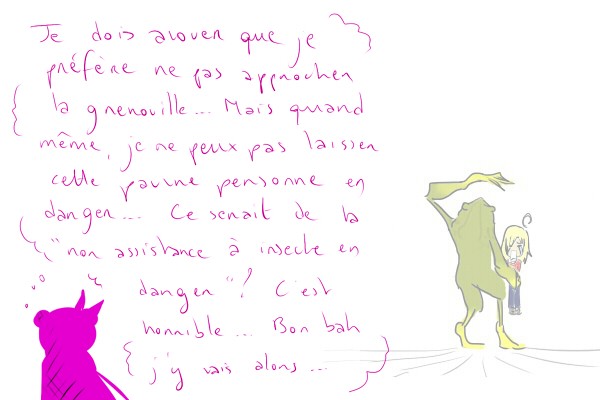 Je dois avouer que je
préfère ne pas approcher
la grenouille... Mais quand
même, je ne peux pas laisser
cette pauvre personne en
danger... Ce serait de la
"non assistance à insecte en
danger"! C'est
horrible... Bon bah
j'y vais alors...